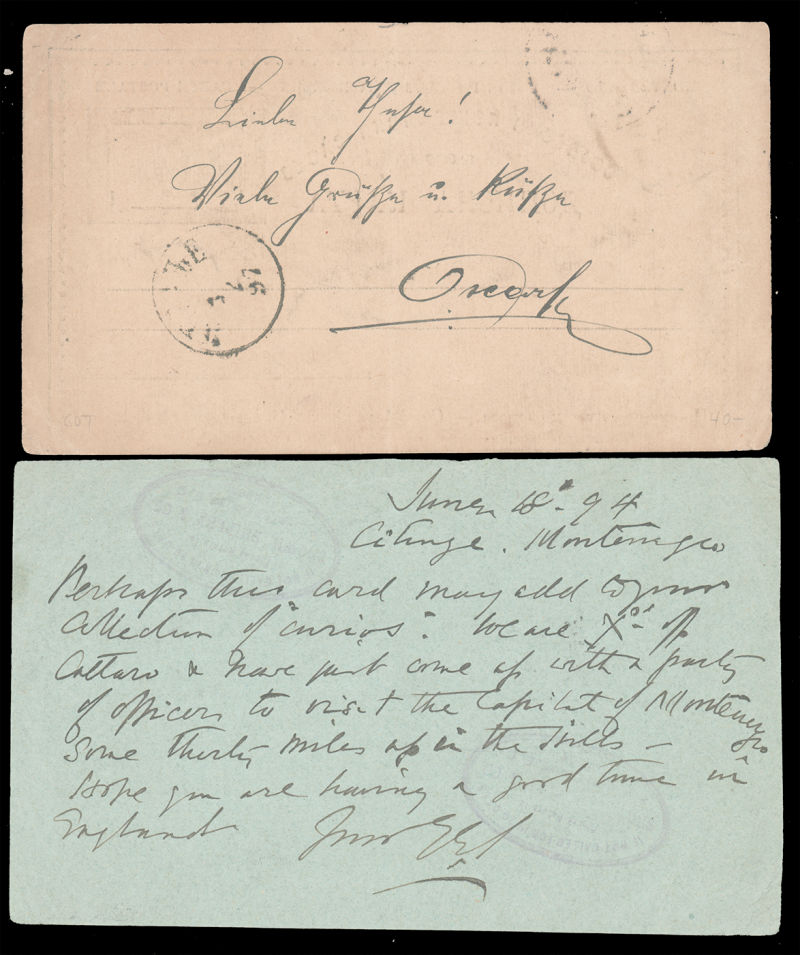 Liebe
Viele Grüße u. Küße
Oscar
607
40-
June 18th 94
Cetinge. Montenegro
Perhaps this card may add to your
Collection of "curios". We are off
Cattaro & have just come up with a party
of officers to visit the Capital of Montenegro
some thirty miles up in the hills —
Hope you are having a good time in
England